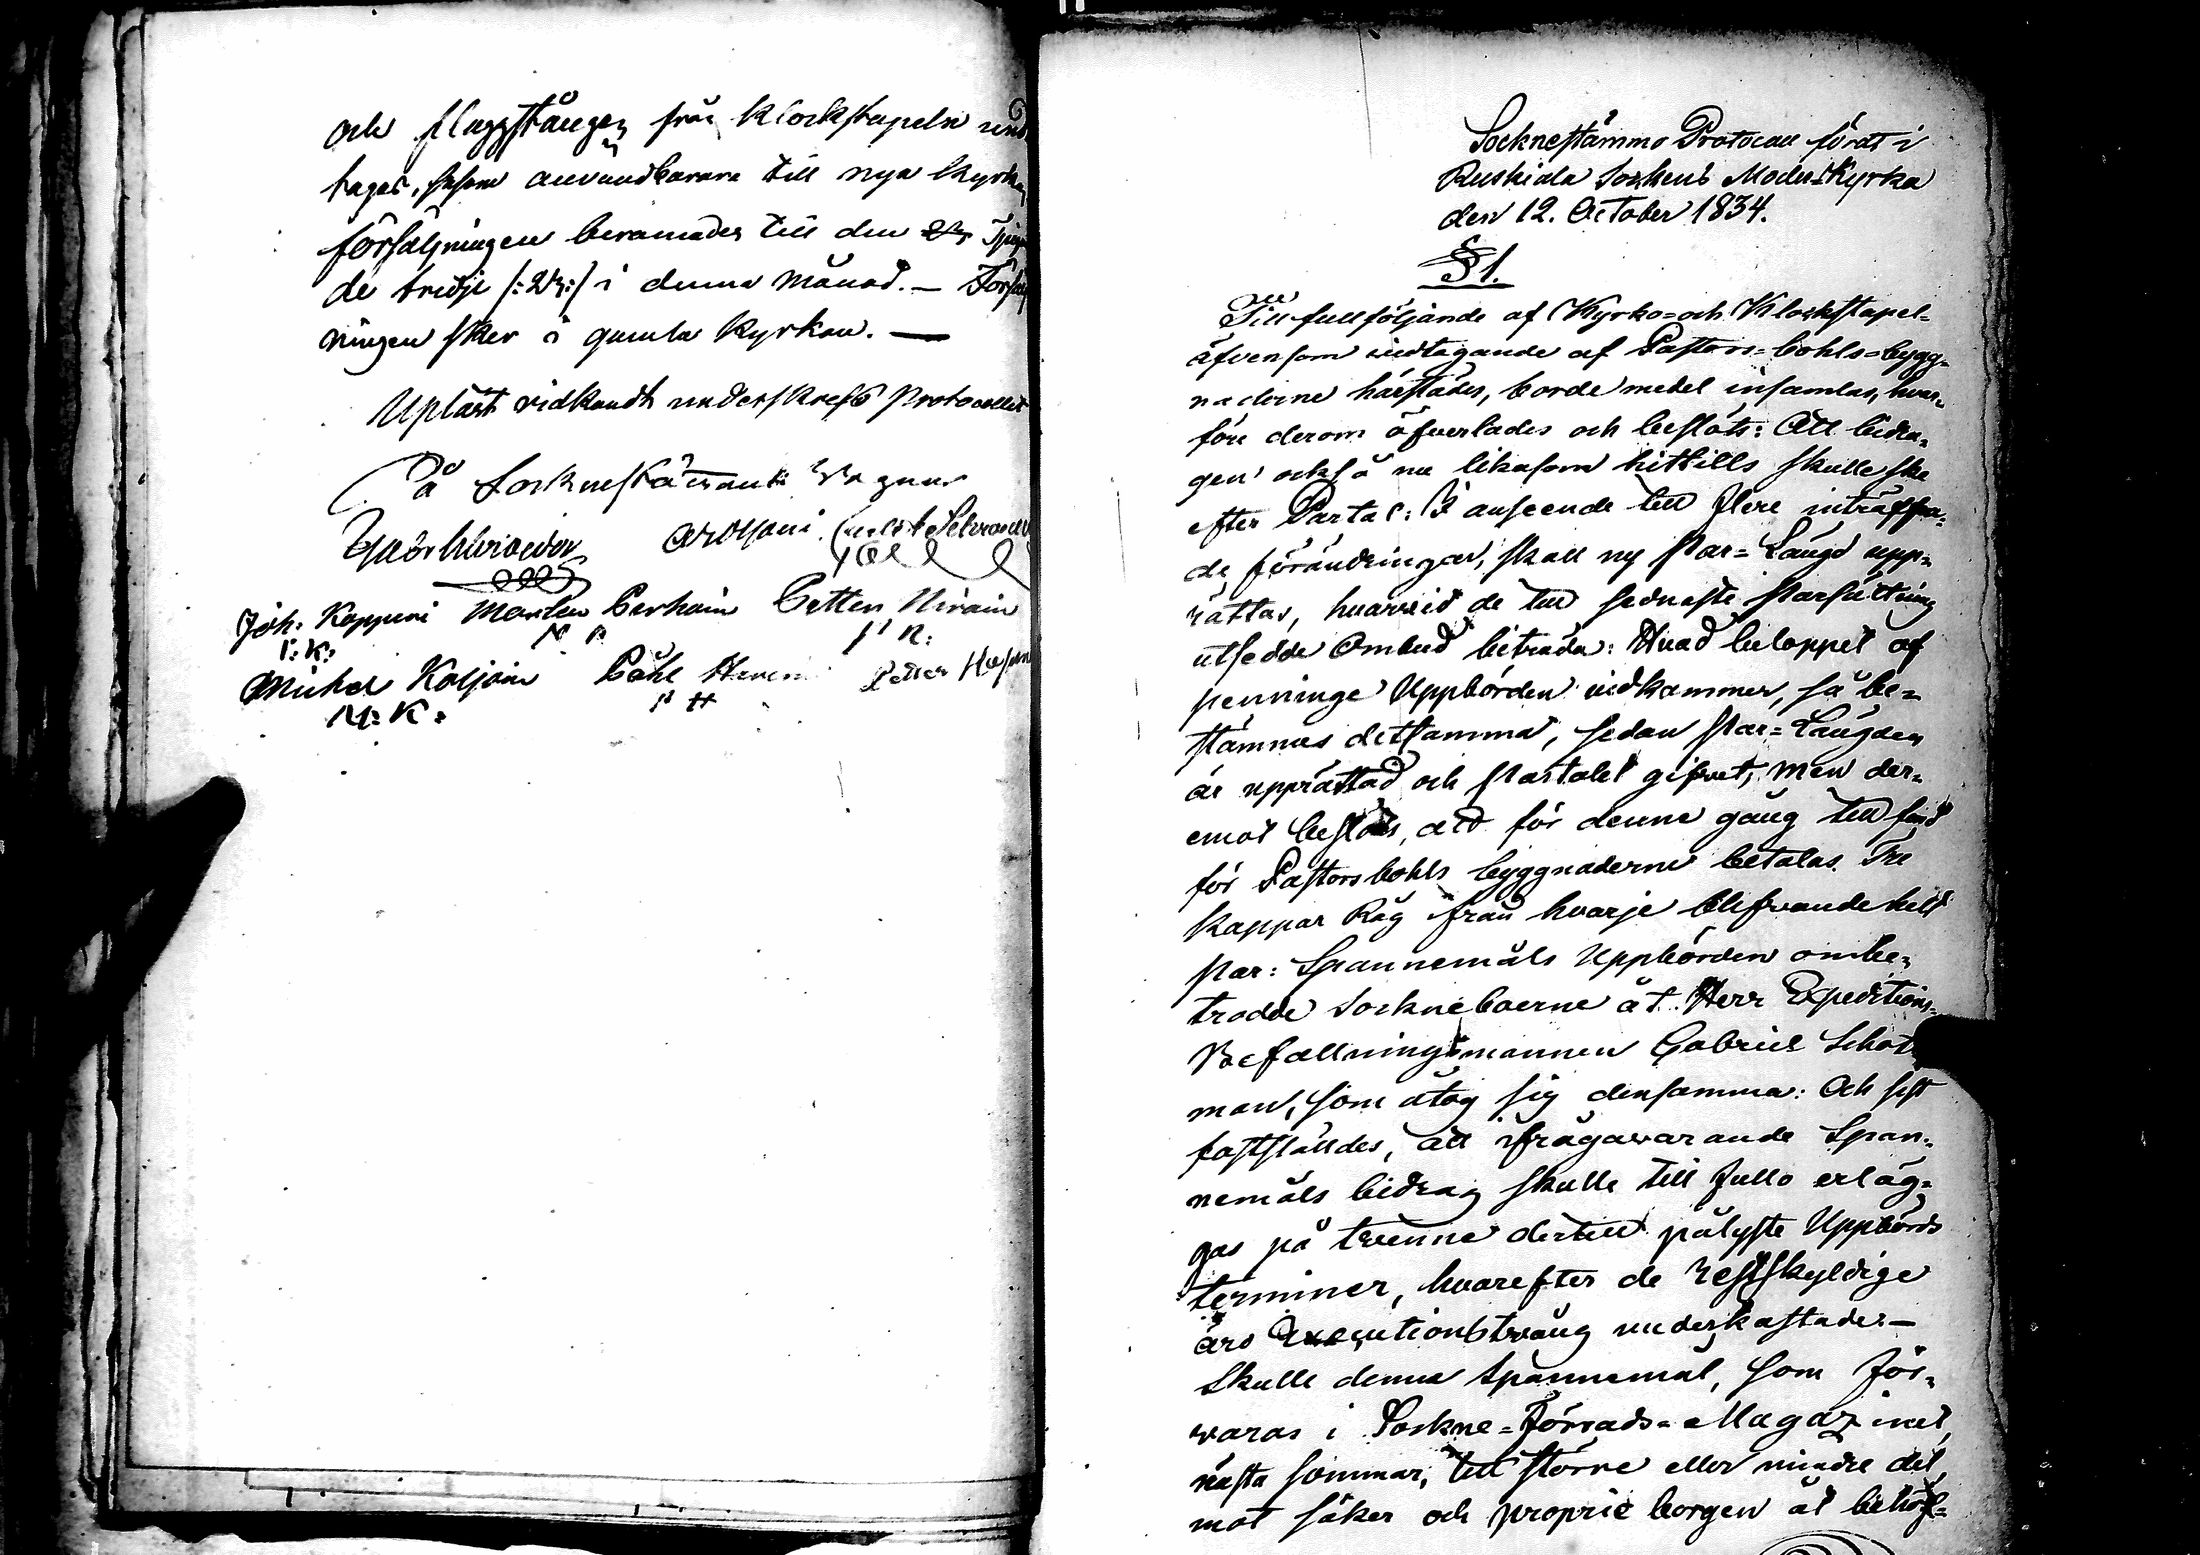 och flaggstången från Klockstapeln und
tages, såsom användbarare till nya Kyrkan
försäljningen beramades till den
de tridje /:23:/ i denna Månad. — Försälj
ningen sker i gamla Kyrkan. —
Upläst vidkändt underskrefs Protocollet
På Sockenstämmans Vagnar
Joh: Kopponi Morten Perhoin Petter Hirvoin
I: K: P H:
Michel Koljoin Påhl Petter
M: K: P H
Socknestämmo Protocoll fördt i
Ruskiala Sockens Moder-Kyrka
den 12. October 1834.
§ 1.
Till fullföljande af Kyrko- och Klockstapel-
äfvensom vidtagande af Pastors-bohls-bygg-
naderne härstädes, borde medel insamlas, hvar-
före derom öfverlades och beslöts: Att bidra-
gen också nu likasom hittills skulle ske
efter Partal: I anseende till flere inträffa-
de förändringar, skall ny Par-Längd upp-
rättas, hvarvid de till sednaste Parsättning
utsedde Ombud biträda: Hvad beloppet af
penninge Uppbörden vidkommer, så be-
stämmes detsamma, sedan Par-Längden
är upprättad och Partalet gifvet, men der-
emot beslöts, att för denne gång till fond
för Pastorsbohls byggnaderne betalas Tre
Kappar Råg från hvarje blifvande helt
Par: Spannemåls Uppbörden ombe-
trodde Socknéboerne åt Herr Expeditions-
Befallningsmannen Gabriel
man, som åtog sig densamma: Och sist
fastställdes, att ifrågavarande Span-
nemåls bidrag skulle till fullo erläg-
gas på tvenne dertill pålyste Uppbörds
terminer, hvarefter de restskyldige
äro Executionstvång underkastade —
Skulle denna Spannemål, som för-
varas i Sockne-Förråds-Magazinet,
nästa sommar, till större eller mindre del
mot säker och proprie borgen åt behöf-